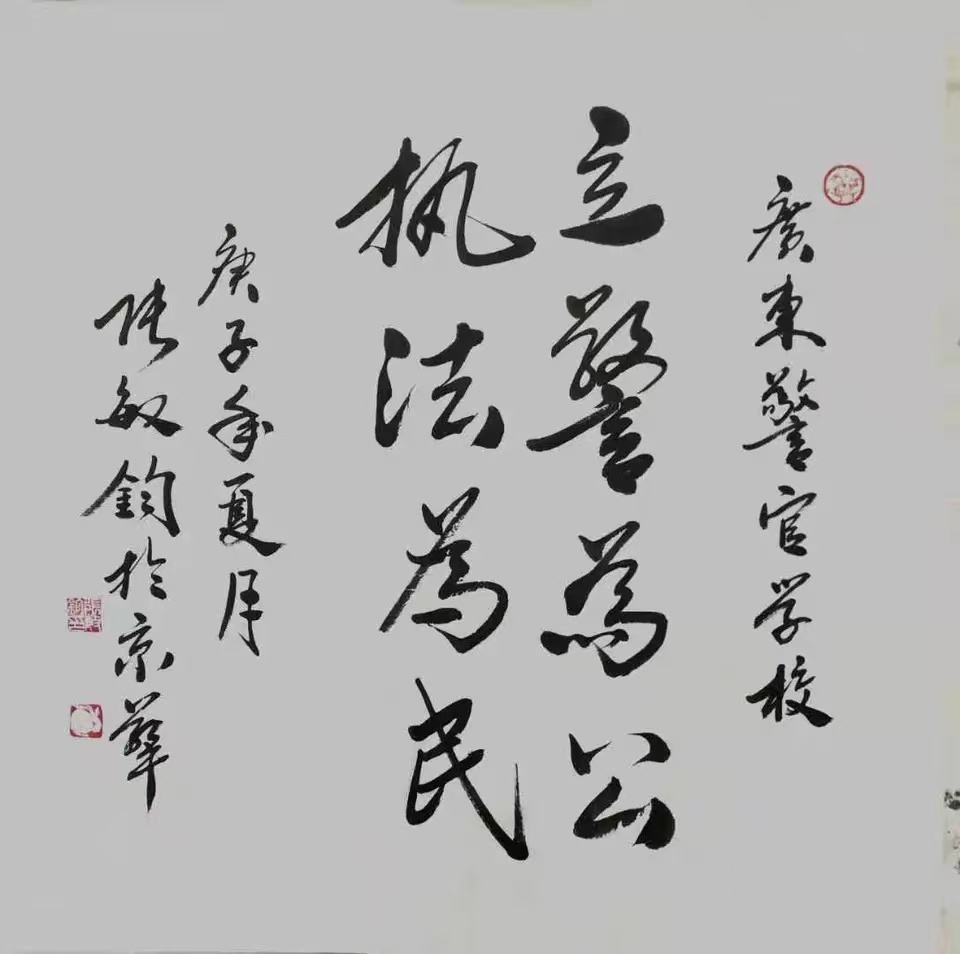 廣東警官学校
立警為公
执法為民
庚子年夏月
张敏鈞於京華